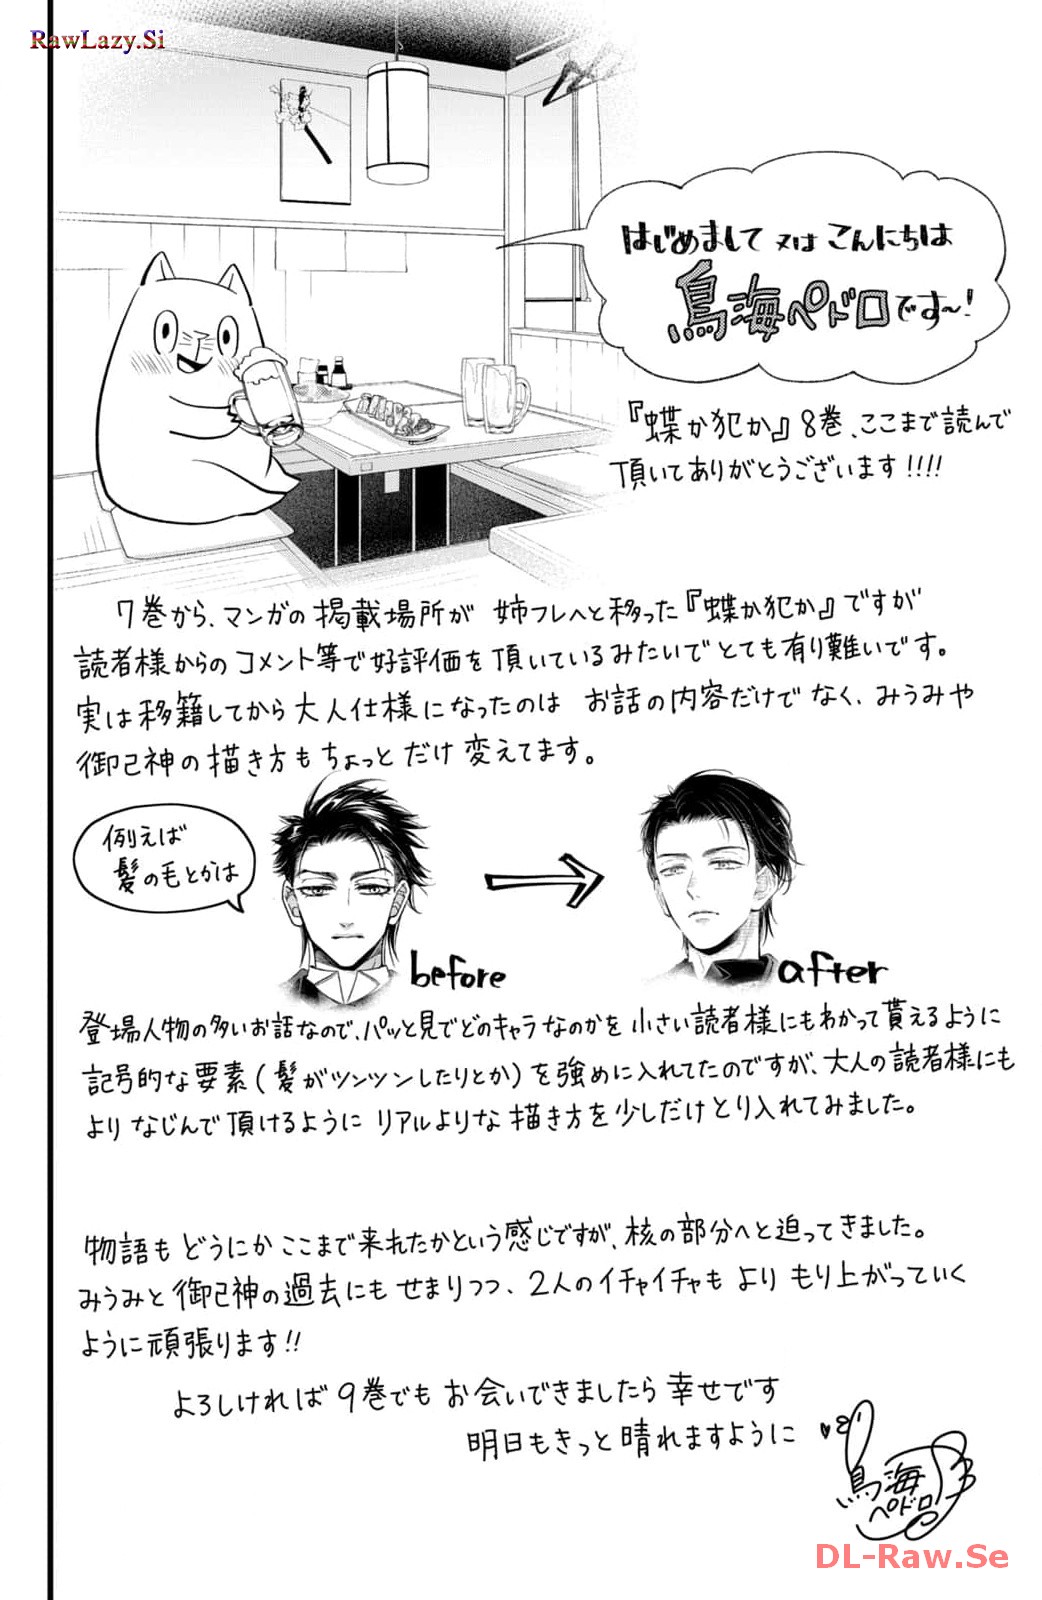 RawLazy.Si
はじめまして 又は こんにちは
鳥海ペドロです〜!
『蝶か犯か』8巻、ここまで読んで
頂いてありがとうございます!!!!
7巻から、マンガの掲載場所が 姉フレへと移った『蝶か犯か』ですが
読者様からのコメント等で好評価を頂いているみたいでとても有り難いです。
実は移籍してから大人仕様になったのは お話の内容だけでなく、みうみや
御己神の描き方もちょっとだけ変えてます。
例えば
髪の毛とかは
before
after
登場人物の多いお話なので、パッと見でどのキャラなのかを小さい読者様にもわかって貰えるように
記号的な要素(髪がツンツンしたりとか)を強めに入れてたのですが、大人の読者様にも
よりなじんで頂けるように リアルよりな描き方を少しだけとり入れてみました。
物語も どうにか ここまで来れたかという感じですが、核の部分へと迫ってきました。
みうみと御己神の過去にも せまりつつ、2人のイチャイチャも より もり上がっていく
ように頑張ります!!
よろしければ9巻でも お会いできましたら 幸せです
明日もきっと晴れますように
鳥海
ペドロ
DL-Raw.Se